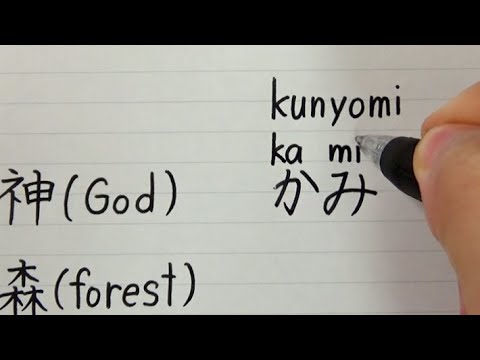 kunyomi
ka mi
神(God) かみ
森(forest)